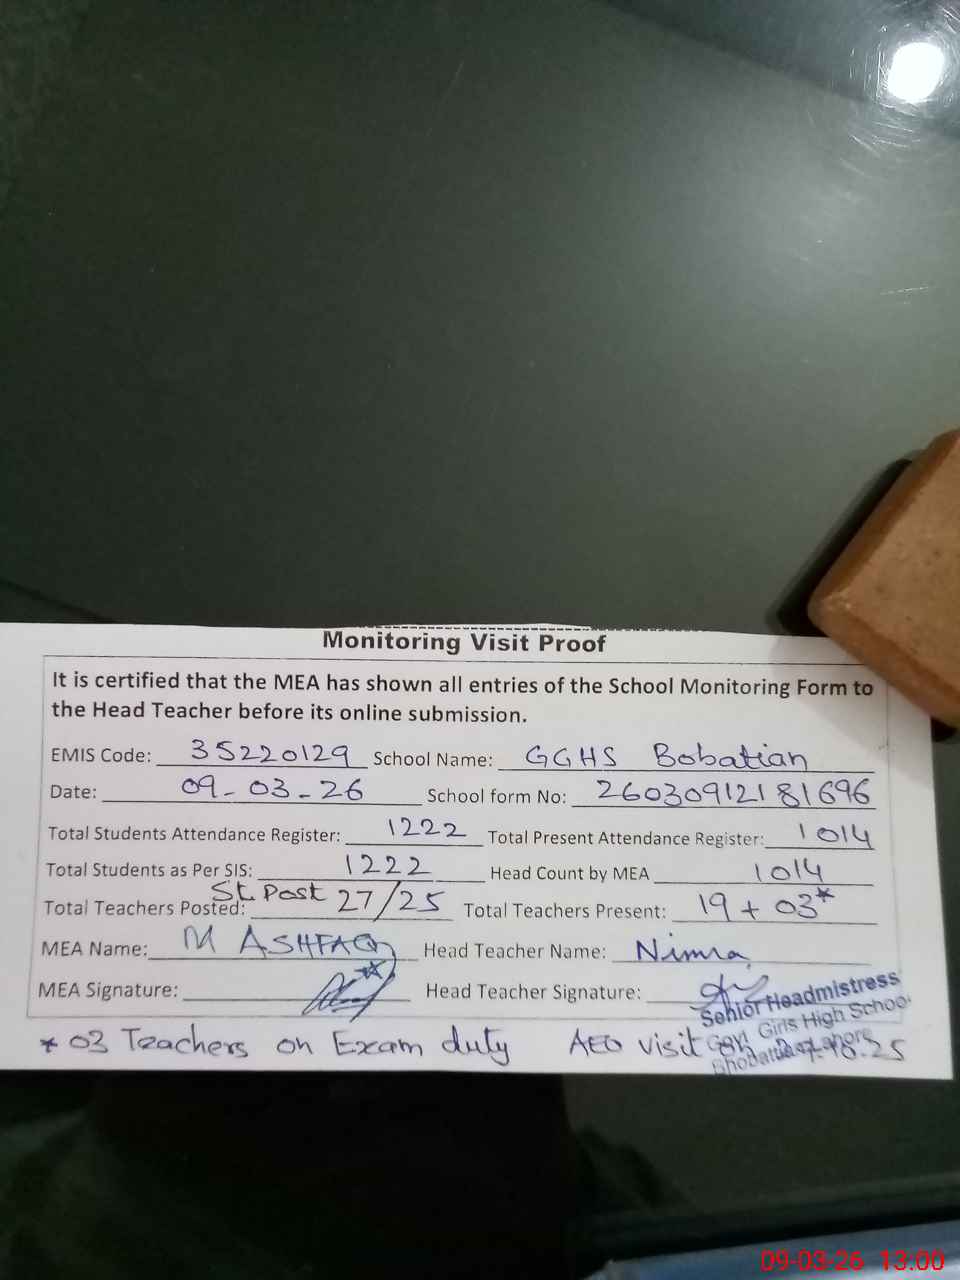 Monitoring Visit Proof
It is certified that the MEA has shown all entries of the School Monitoring Form to
the Head Teacher before its online submission.
EMIS Code: 35220129 School Name: GGHS Bobatian
Date: 09-03-26 School form No: 26030912181696
Total Students Attendance Register: 1222 Total Present Attendance Register: 1014
Total Students as Per SIS: 1222 Head Count by MEA 1014
St. Post
Total Teachers Posted: 27/25 Total Teachers Present: 19 + 03*
MEA Name: M ASHFAQ Head Teacher Name: Nimra
MEA Signature: Head Teacher Signature:
Senior Headmistress
Govt. Girls High School
* 03 Teachers on Exam duty AEO visit
Lahore
09-03-26 13:00